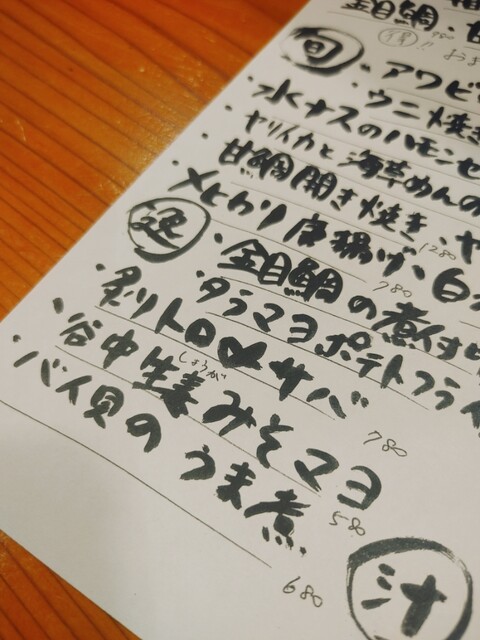 金目鯛・甘
780
旬
・アワビ
ウニ焼き
・水ナスのハモンセ
・ヤリイカと海草めんの
・甘鯛開き焼き、ヤ
1280
・メヒカリ唐揚げ、白
780
逸
・金目鯛の煮付け
・タラマヨポテトフライ
・炙りトロ♥サバ
780
・谷中生姜みそマヨ
しょうが
580
・バイ貝のうま煮
680
汁